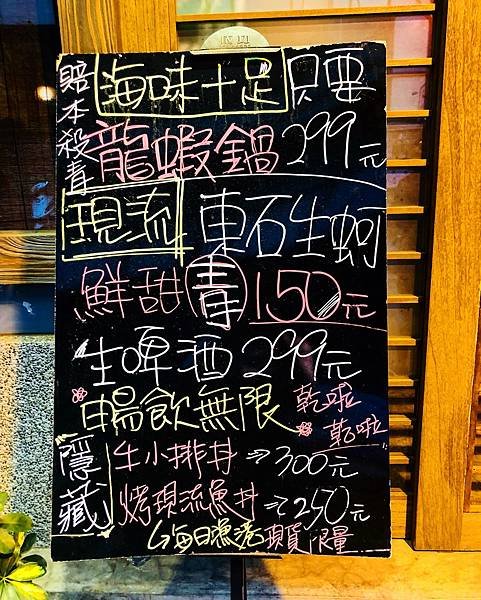 賠本殺青
海味十足 只要
龍蝦鍋 299元
現流 東石生蚵
鮮甜 青 150元
生啤酒 299元
暢飲無限 乾啦
乾啦
隱藏
牛小排丼 → 300元
烤現流魚丼 → 250元
↳每日漁港現貨 限量